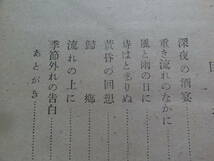 目
深夜の酒宴
重き流れのなかに
風と雨の日に
時はとまりぬ
黄昏の回想
歸郷
流れの上に
季節外れの告白
あとがき